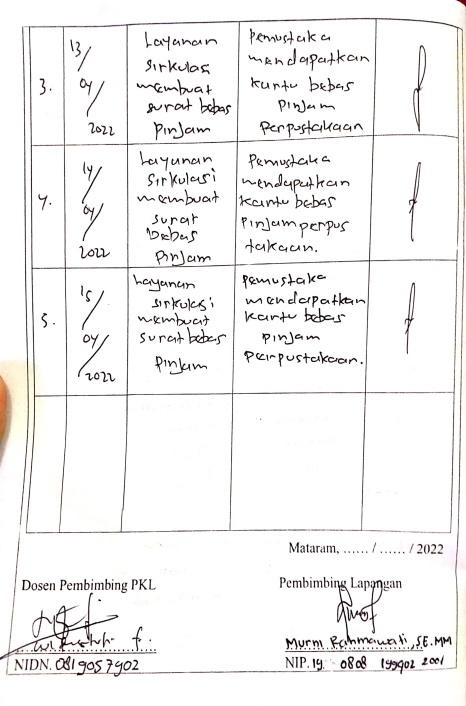 3.
13/
04/
2022
Layanan
sirkulas
membuat
surat bebas
Pinjam
Pemustaka
mendapatkan
kartu bebas
Pinjam
Perpustakaan
4.
14/
04/
2022
Layanan
Sirkulasi
membuat
surat
bebas
Pinjam
Pemustaka
mendapatkan
kartu bebas
Pinjam perpus
takaan.
5.
15/
04/
2022
Layanan
sirkulasi
membuat
surat bebas
Pinjam
Pemustaka
mendapatkan
kartu bebas
Pinjam
Perpustakaan.
Mataram, ...... / ...... / 2022
Dosen Pembimbing PKL
Pembimbing Lapangan
Murni Rahmawati, SE.MM
NIDN. 0819057902
NIP. 19 0808 199902 2001